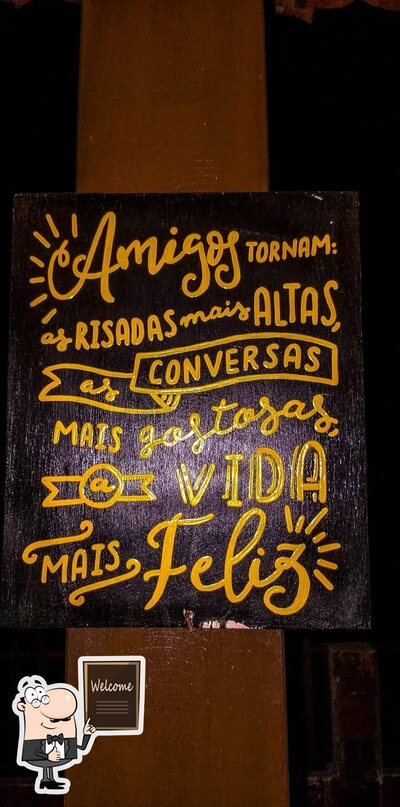 Amigos TORNAM:
as RISADAS mais ALTAS,
as CONVERSAS
MAIS gostosas,
a VIDA
MAIS Feliz
Welcome